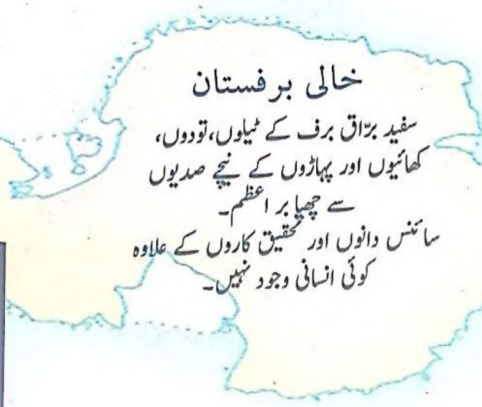 خالی برفستان
سفید برّاق برف کے ٹیلوں، تودوں،
کھائیوں اور پہاڑوں کے نیچے صدیوں
سے چھپا بر اعظم۔
سائنس دانوں اور تحقیق کاروں کے علاوہ
کوئی انسانی وجود نہیں۔